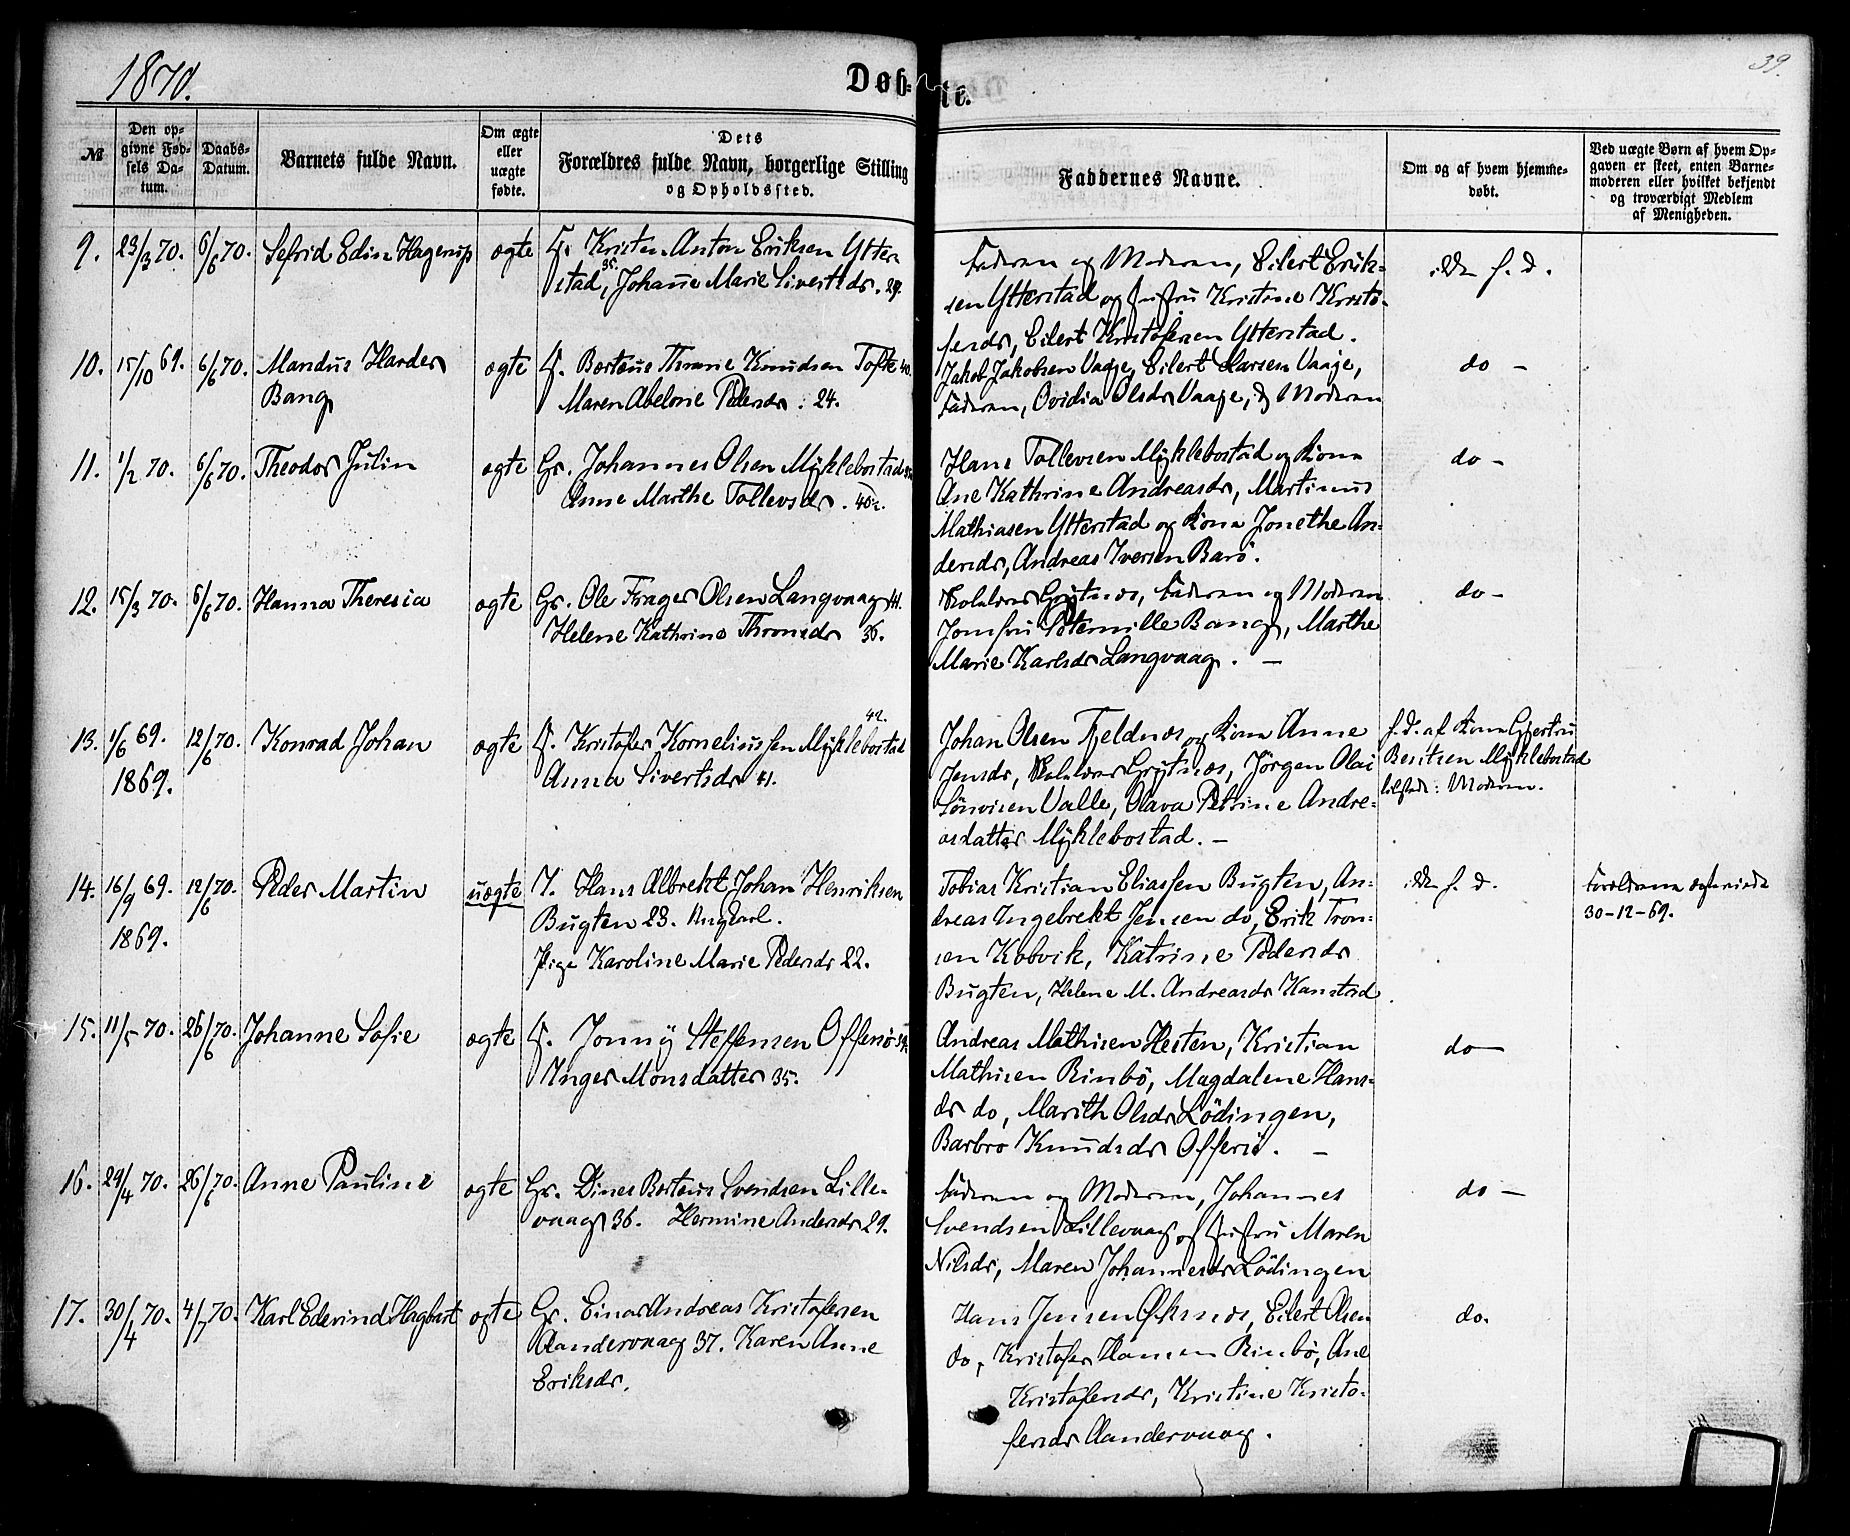 1870.
Døb-te.
39.
№
Den opgivne Fødsels Datum.
Daabs-Datum.
Barnets fulde Navn.
Om ægte eller uægte fødte.
Dets Forældres fulde Navn, borgerlige Stilling og Opholdssted.
Faddernes Navne.
Om og af hvem hjemmedøbt.
Ved uægte Børn af hvem Opgaven er skeet, enten Barnemoderen eller hvilket bekjendt og troværdigt Medlem af Menigheden.
9. 23/3 70. 6/6 70. Sefrid Edin Hagerup ægte Kristen Anton Eriksen Ytter
stad, 35. Johanne Marie Sivertsdr. 29.
Faderen og Moderen, Eilert Erik-
sen Ytterstad og Hustru Kristine Kristo-
fersdr, Eilert Kristofersen Ytterstad.
ikke h. d.
10. 15/10 69. 6/6 70. Mandus Harder
Bang
ægte Borteus Throne Knudsen Tofte 40.
Maren Abelone Pedersdr. 24.
Jakob Jakobsen Vaaje, Eilert Larsen Vaaje,
Faderen, Ovidia Olsdr Vaaje, & Moderen
do –
11. 1/2 70. 6/6 70. Theodor Julin
ægte Gr. Johannes Olsen Myklebostad
Anne Marthe Tollevsdr. 40½.
Hans Tollevsen Myklebostad og Kona
Ane Kathrine Andreasdr, Martinus
Mathiasen Ytterstad og Kona Jonethe An-
dersdr, Andreas Iversen Barø.
do –
12. 15/3 70. 6/6 70. Hanna Theresia
ægte Gr. Ole Frager Olsen Langvaag 41.
Helene Kathrine Thronsdr 36.
Grytnes, Faderen og Moderen
Jomfru Peternille Bang, Marthe
Marie Karlsdr Langvaag. –
do –
13. 1/6 69. 12/6 70. Konrad Johan
1869.
ægte Kristofer Korneliussen Myklebostad 42.
Anna Sivertsdr 41.
Johan Olsen Fjeldnes og Kona Anne
Jensdr, Grytnes, Jørgen Olai
Sønvisen Valle, Olava Petrine Andre-
asdatter Myklebostad. –
h. d. af Kona Gjertru
Beritsen Myklebostad
tilstede: Moderen.
14. 16/9 69. 12/6 70. Peder Martin
1869.
uægte I. Hans Albrekt Johan Henriksen
Bugten 23. Ungkarl.
Pige Karoline Marie Pedersdr 22.
Tobias Kristian Eliassen Bugten, An-
dreas Ingebrekt Jensen do, Erik Tron-
sen Kobvik, Katrine Pedersdr
Bugten, Helene M. Andreasdr Kanstad.
ikke h. d.
Forældrene
30-12-69.
15. 11/5 70. 26/6 70. Johanne Sofie
ægte Jonny Steffensen Offersø
Inger Monsdatter 35.
Andreas Mathisen Hesten, Kristian
Mathisen Rinbø, Magdalene Hans-
dr do, Marith Olsdr Lødingen,
Barbro Knudsdr Offersø. –
do –
16. 29/4 70. 26/6 70. Anne Pauline
ægte Gr. Dines Borteus Svendsen Lille-
vaag 36. Hermine Andersdr 29.
Faderen og Moderen, Johannes
Svendsen Lillevaag og Hustru Maren
Nilsdr, Maren Johannesdr Lødingen
do –
17. 30/4 70. 4/7 70. Karl Edevind Hagbart
ægte Gr. Einar Andreas Kristofersen
Aandervaag 37. Karen Anne
Eriksdr.
Hans Jensen Øksnes, Eilert Olsen
do, Kristofer Hansen Rinbø, Ane
Kristofersdr, Kristine Kristo-
fersdr Aandervaag.
do.